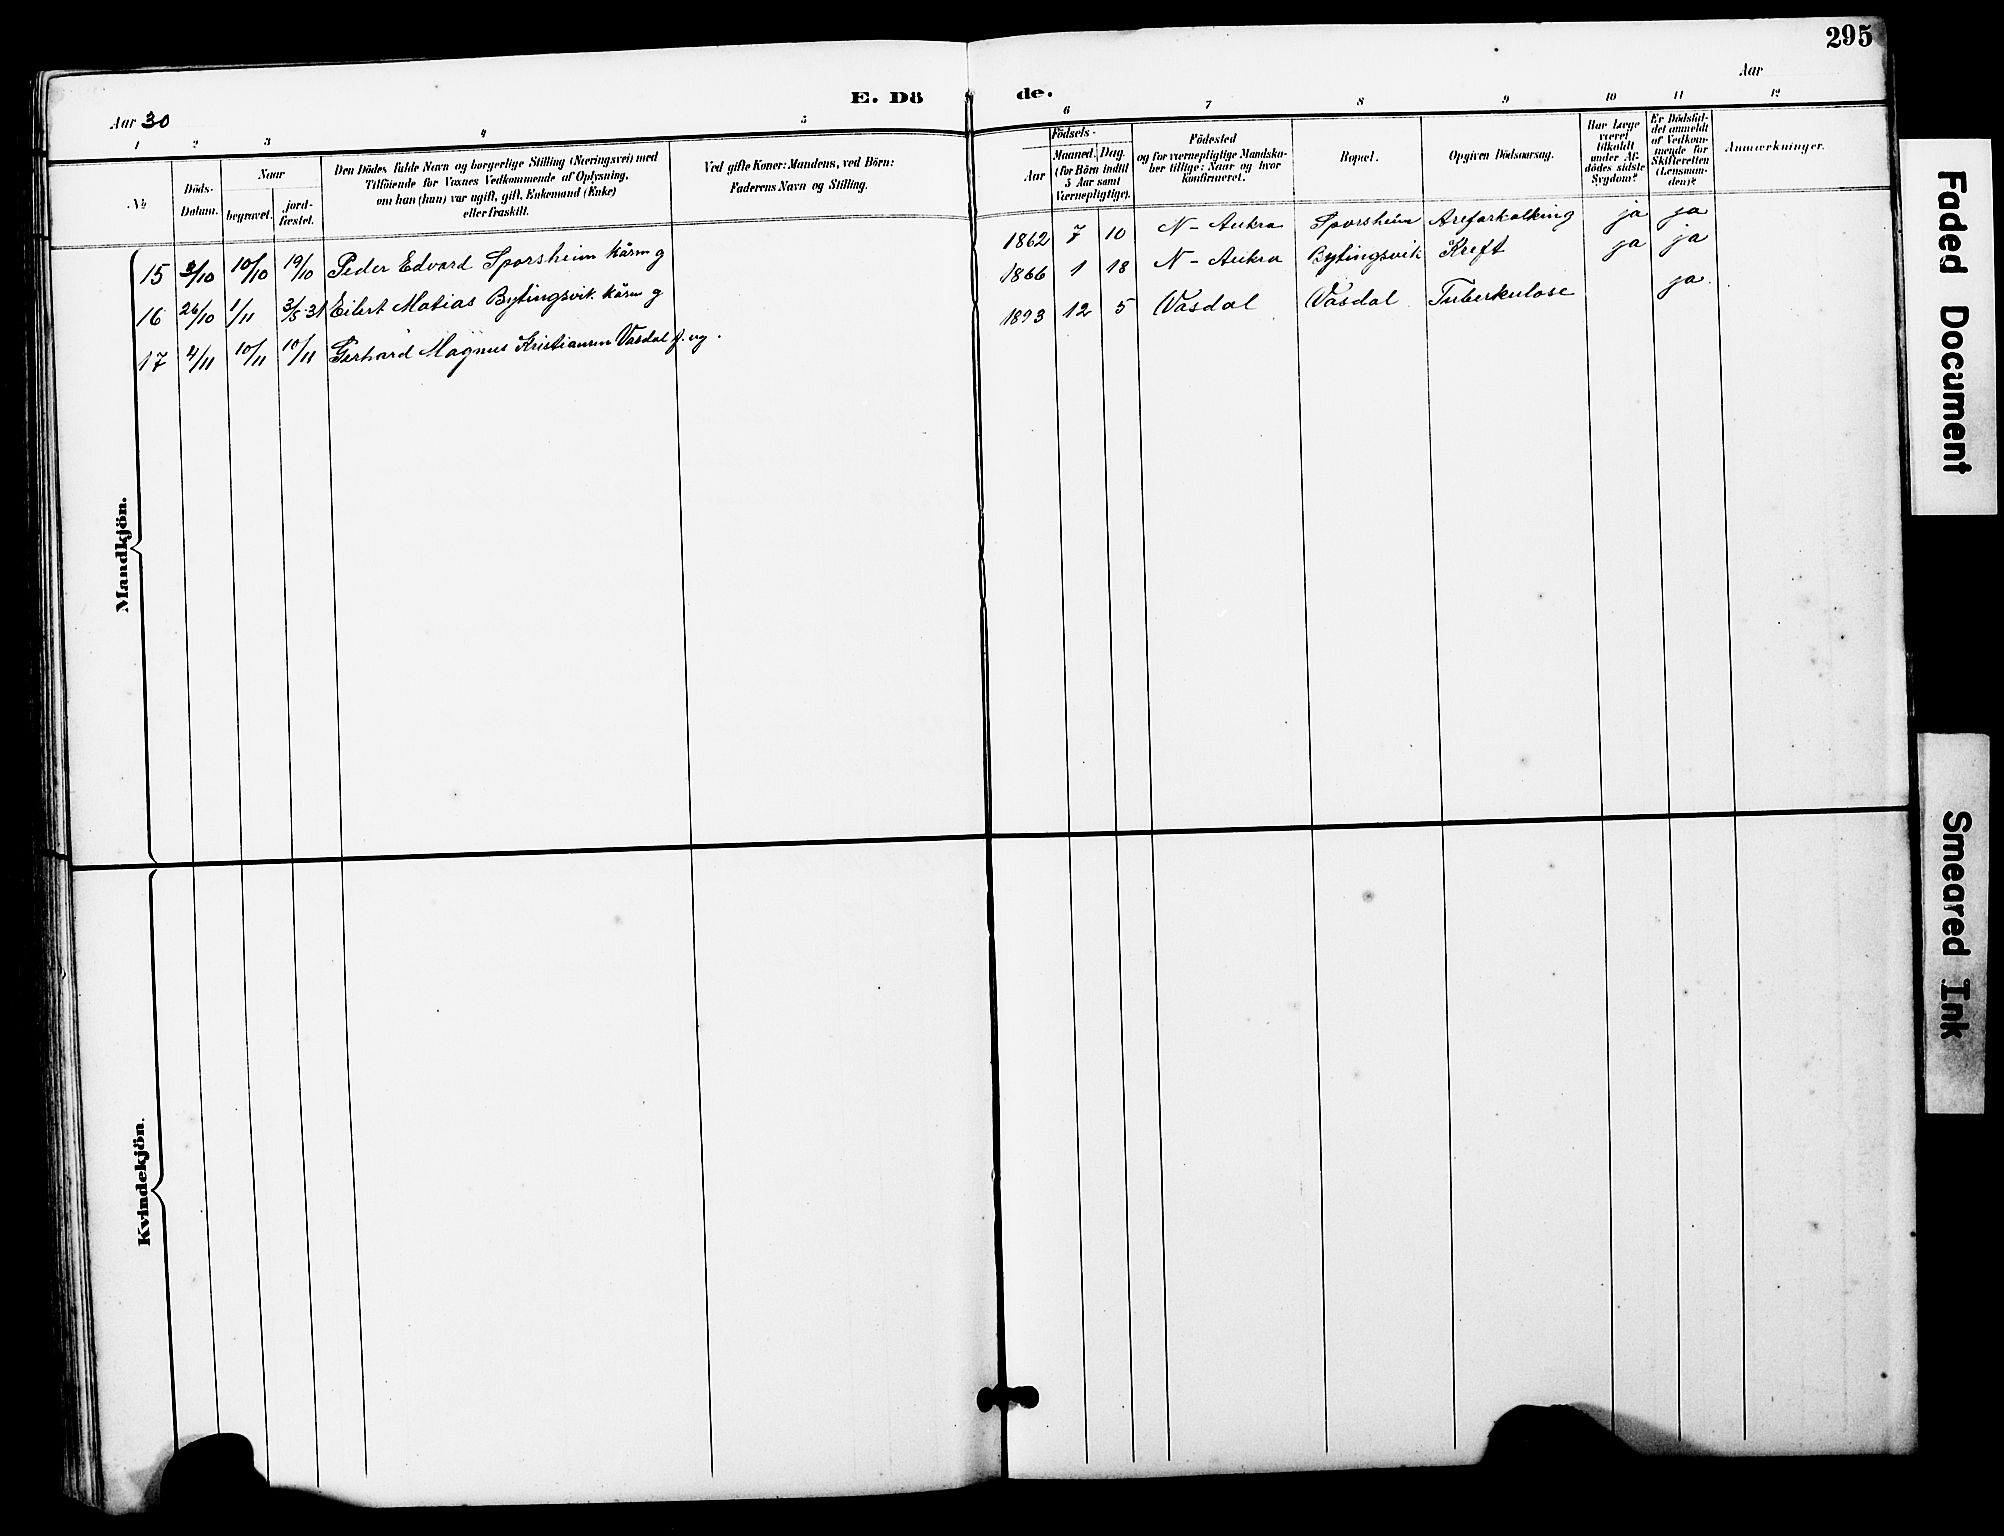 295
E. Döde.
Aar 30
Aar
1 2 3 4 5 6 7 8 9 10 11 12
№
Döds-
Datum.
Naar
begravet.
jord-
fæstet.
Den Dödes fulde Navn og borgerlige Stilling (Næringsvei) med
Tilföiende for Voxnes Vedkommende af Oplysning,
om han (hun) var ugift, gift, Enkemand (Enke)
eller fraskilt.
Ved gifte Koner: Mandens, ved Börn:
Faderens Navn og Stilling.
Födsels-
Aar
Maaned. Dag.
(for Börn indtil
5 Aar samt
Værnepligtige).
Födested
og for værnepligtige Mandska-
ber tillige: Naar og hvor
konfirmeret.
Bopæl.
Opgiven Dödsaarsag.
Har Læge
været
tilkaldt
under Af-
dödes sidste
Sygdom?
Er Dödsfal-
det anmeldt
af Vedkom-
mende for
Skifteretten
(Lensman-
den)?
Anmærkninger.
Mandkjön.
15 3/10 10/10 19/10 Peder Edvard Sporsheim kårm g 1862 7 10 N-Aukra Sporsheim Areforkalking ja ja
16 26/10 1/11 3/5-31 Eilert Matias Bytingsvik kårm g 1866 1 18 N-Aukra Bytingsvik Kreft ja ja
17 4/11 10/11 10/11 Gerhard Magnus Kristiansen Vasdal f. ug. 1893 12 5 Vasdal Vasdal Tuberkulose ja
Kvindekjön.
Faded Document
Smeared Ink